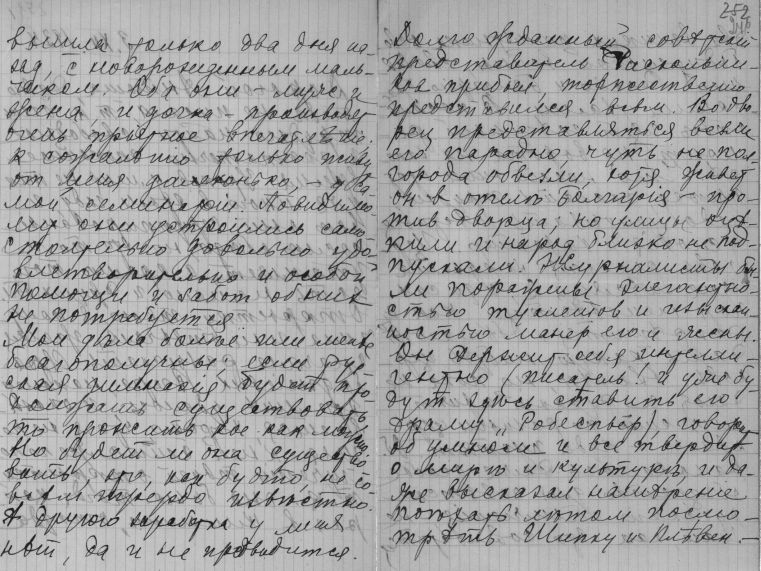 вышла только два дня на-
зад, с новорожденным маль-
чиком. Оба они – муж с
женой и дочка – производят
очень приятное впечатлѣние,
к сожалѣнию только живут
от меня далеконько, – у са-
мой семинарии. Повидимо-
му они устроились само
стоятельно довольно удо-
влетворительно и особой
помощи и забот об них
не потребуется.
Мои дѣла более или менее
благополучны; если рус-
ская гимназия будет про-
должать существовать
то прожить кое как можно.
Но будет ли она существо
вать, это, как будто не со-
всем твердо извѣстно.
А другого заработка у меня
нѣт, да и не предвидится.
252
Долго жданный совѣтский
представитель Раскольни-
ков прибыл торжественно
представился всем. Во дво-
рец представляться везли
его парадно, чуть не пол-
города обвезли, хотя живет
он в отелѣ Болгария – про-
тив дворца, но улицы оцѣ-
пили и народ близко не под-
пускали. Журналисты бы-
ли поражены элегантно-
стью туалетов и изыскан
ностью манер его и жены.
Он держит себя интелли-
гентно (писатель! и уже бу-
дут здѣсь ставить его
драму „Робеспьер") говорит
об умном и все твердит
о мирѣ и культурѣ, и да-
же высказал намѣрение
поѣхать лѣтом посмо-
трѣть Шипку и Плѣвен. –